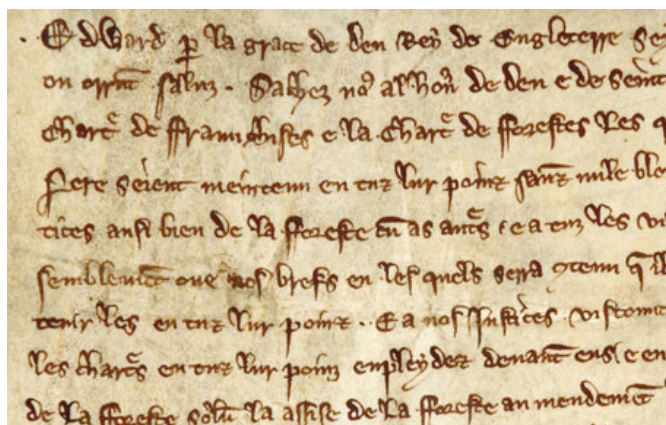 Edward p la grace de deu Rey de Engleterre Sey
on orrūt saluz. Sachez no9 al hon̄ de deu e de seint
Charť de ffraunchises e la Charť de fforestes les q
Pere seient meintenu en tuz lur poinz sanz nule ble
tices ausi bien de la fforeste cū as auťs · e a tuz les vi
semblemēt oue nos brefs en les quels serra 9tenu q̄ il
tenir les en tuz lur poinz. E a nos Justices viscount
les charťs en tuz lur poinz enpleydez deuant eus e en
de la fforeste solū la assise de la fforeste amendement